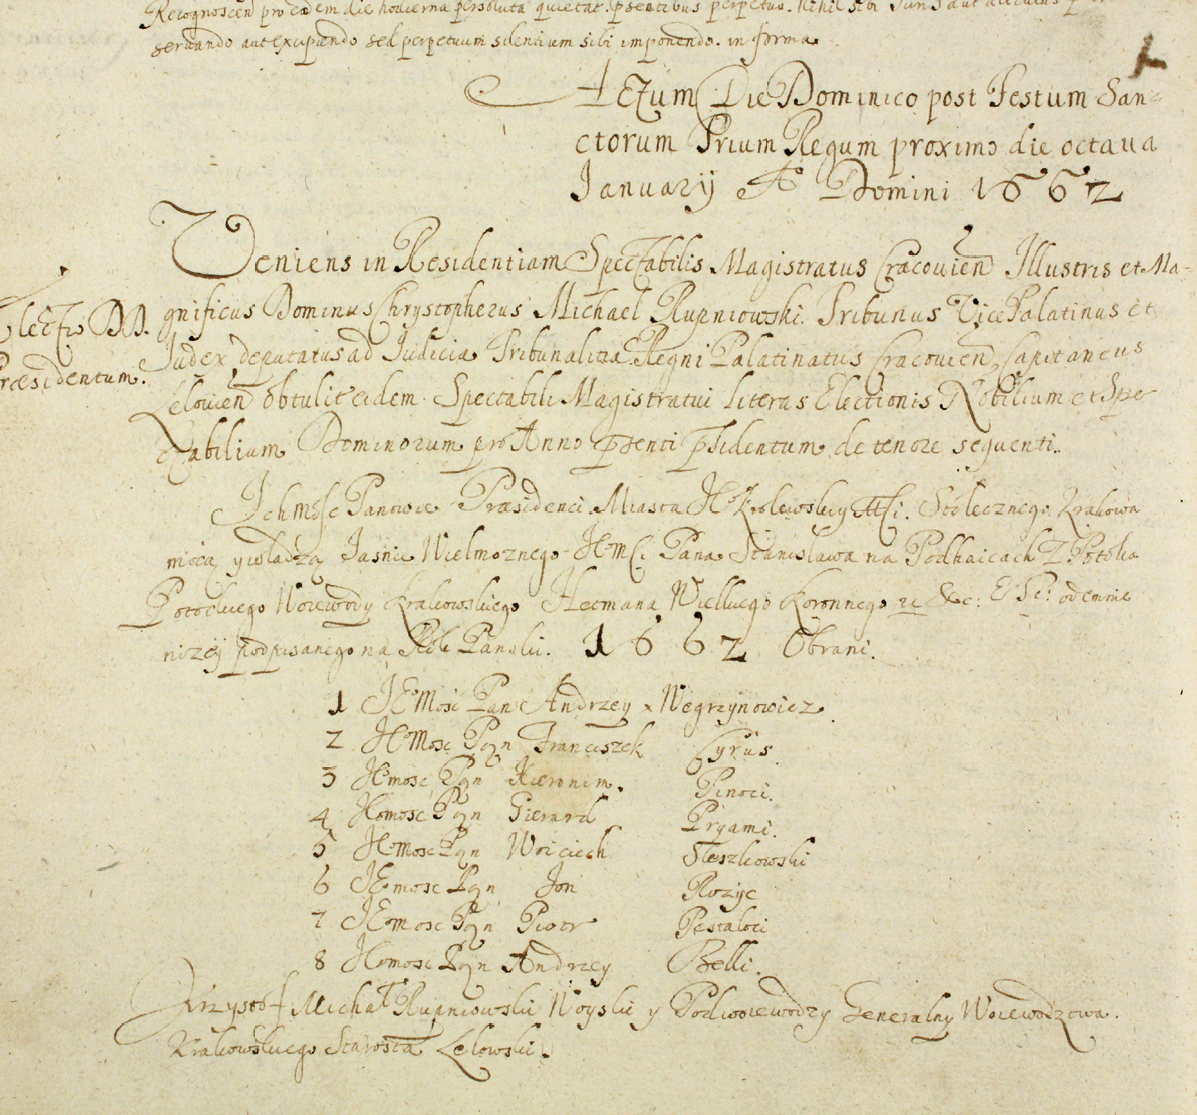 Recognoscen pro eadem die hodierna persoluta quietat. pntibus perpetuo. Nihil sibi Juris aut
seruando aut excipiendo sed perpetuum silentium sibi imponendo. in forma
Actum Die Dominico post Festum San=
ctorum Trium Regum proximo die octaua
January Aº Domini 1662
Veniens in Residentiam Spectabilis Magistratus Cracouien Illustris et Ma-
Electio DD. gnificus Dominus Chrystopherus Michael Rupniowski Tribunus Vice Palatinus et
Præsidentum. Judex deputatus ad Judicia Tribunalitia Regni Palatinatus Cracouien, Capitaneus
Lelouien obtulit eidem Spectabili Magistratui literas Electionis Nobilium et Spe
ctabilium Dominorum pro Anno pnti psidentum de tenore sequenti.
Ich Mosc Panowie Præsidenci Miasta JKKrolewskiey Msci. Stołecznego Krakowa
mocą y władzą Jasnie Wielmoznego JeMsci Pana Stanisława na Podhaicach Z Potoka
Potockiego Woiewody Krakowskiego Hetmana Wielkiego Koronnego &c: &c: odemnie
nizey podpisanego na Rok Panski. 1662 Obrani.
1 JEMosc Pan Andrzey Wegrzynowicz
2 JEMosc Pan Franciszek Cyrus
3 Jemosc Pan Hieronim Pinoci.
4 Jemosc Pan Gierard Pryami.
5 JEMosc Pan Woiciech Fleszkowski
6 JEmosc Pan Jan Rozyc
7 JEmosc Pan Piotr Pestaloci
8 Jemosc Pan Andrzey Belli.
Krzysztof Michał Rupniowski Woyski y Podwoiewodzy Generalny Woiewodzowa.
Krakowskiego Starosta Lelowski.